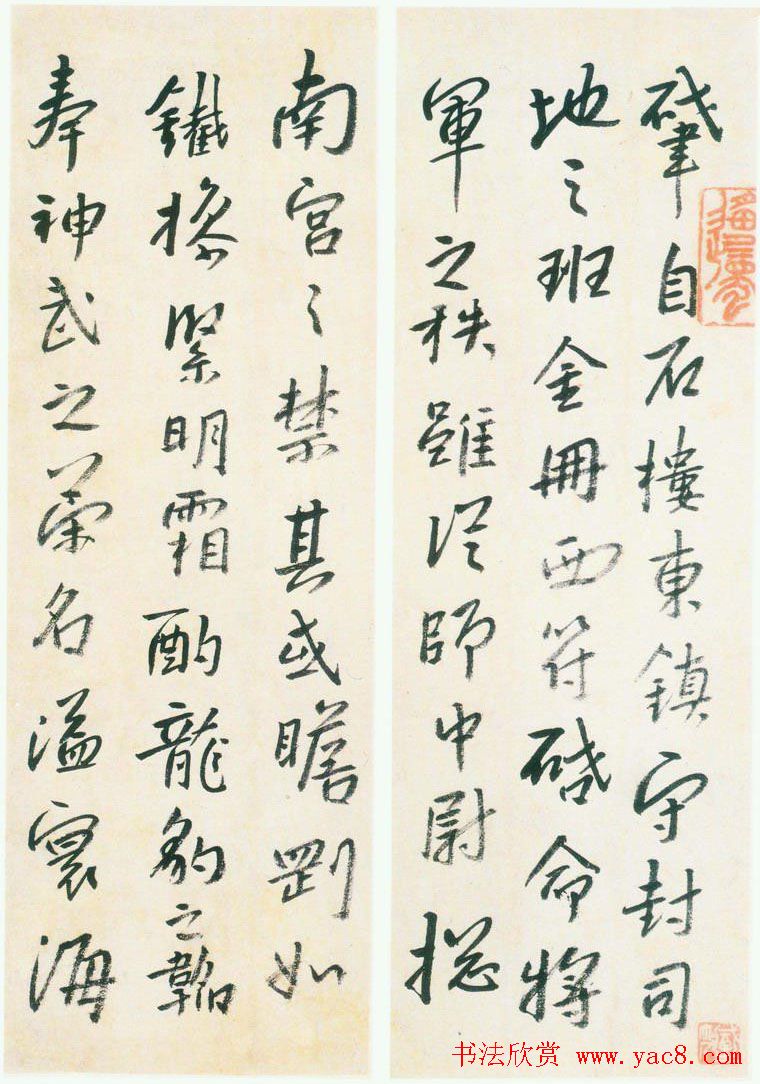 肇自石樓東鎮守封司
地之班金冊西符啓命將
軍之秩雖從師中尉摠
南宮之禁其或膽剛如
鐵操緊明霜酌龍豹之韜
奉神武之策名溢寰海
书法欣赏 www.yac8.com